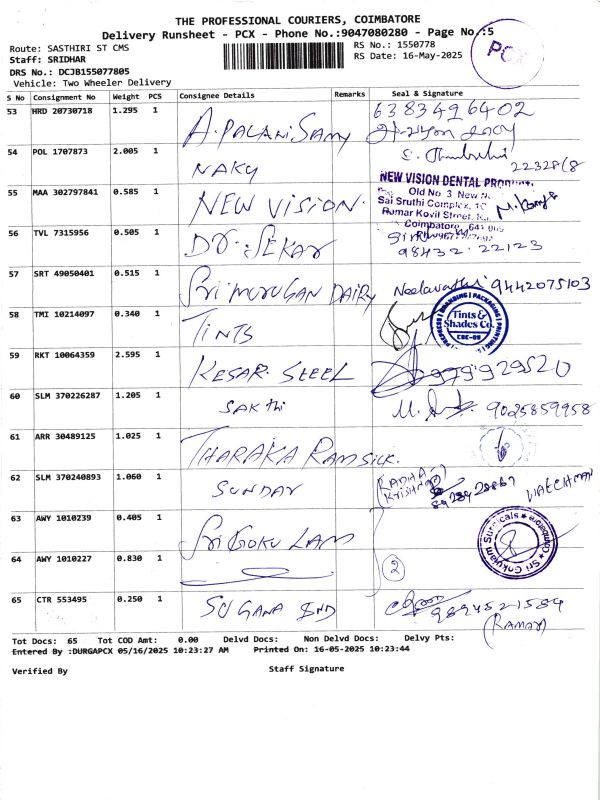 THE PROFESSIONAL COURIERS, COIMBATORE
Delivery Runsheet - PCX - Phone No.:9047080280 - Page No.:5
PCX
Route: SASTHIRI ST CMS
Staff: SRIDHAR
DRS No.: DCJB155077805
Vehicle: Two Wheeler Delivery
RS No.: 1550778
RS Date: 16-May-2025
S No Consignment No Weight PCS Consignee Details Remarks Seal & Signature
53 HRD 20730718 1.295 1 A.PALANISAMY 6383496402
54 POL 1707873 2.005 1 NAKY 22328/8
55 MAA 302797841 0.585 1 NEW VISION.
NEW VISION DENTAL
Old No. 3 New
Sai Sruthi Complex,
Kumar Kovil Street,
Coimbatore
56 TVL 7315956 0.505 1 DR. SEKAR 98432.22123
57 SRT 49050401 0.515 1 SRI MURUGAN DAIRY Neelavathi 9442075103
58 TMI 10214097 0.340 1 TINTS
Tints & Shades Co.
BRANDING | PACKAGING | PRINTING
CBE-09
59 RKT 10064359 2.595 1 KESAR STEEL 979929520
60 SLM 370226287 1.205 1 SAKthi 9025859958
61 ARR 30489125 1.025 1 THARAKA RAM SILK.
62 SLM 370240893 1.060 1 SUNDAR (RADHA KRISHNAN) WATCHMAN
63 AWY 1010239 0.405 1 SRI GOKULAM
Sri Gokulam Surgicals ★ Coimbatore ★
64 AWY 1010227 0.830 1 2
65 CTR 553495 0.250 1 SUGANA IND 9894521584
(RAMAR)
Tot Docs: 65 Tot COD Amt: 0.00 Delvd Docs: Non Delvd Docs: Delvy Pts:
Entered By :DURGAPCX 05/16/2025 10:23:27 AM Printed On: 16-05-2025 10:23:44
Verified By Staff Signature